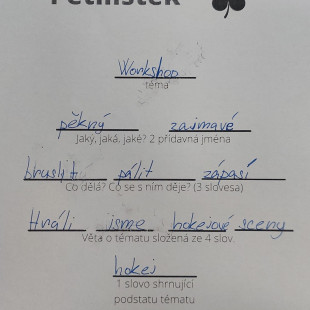 Pětilístek
Workshop
téma
pěkný zajmavé
Jaký, jaká, jaké? 2 přídavná jména
bruslit pálit zápasí
Co dělá? Co se s ním děje? (3 slovesa)
Hráli jsme hokejové sceny
Věta o tématu složená ze 4 slov.
hokej
1 slovo shrnující
podstatu tématu